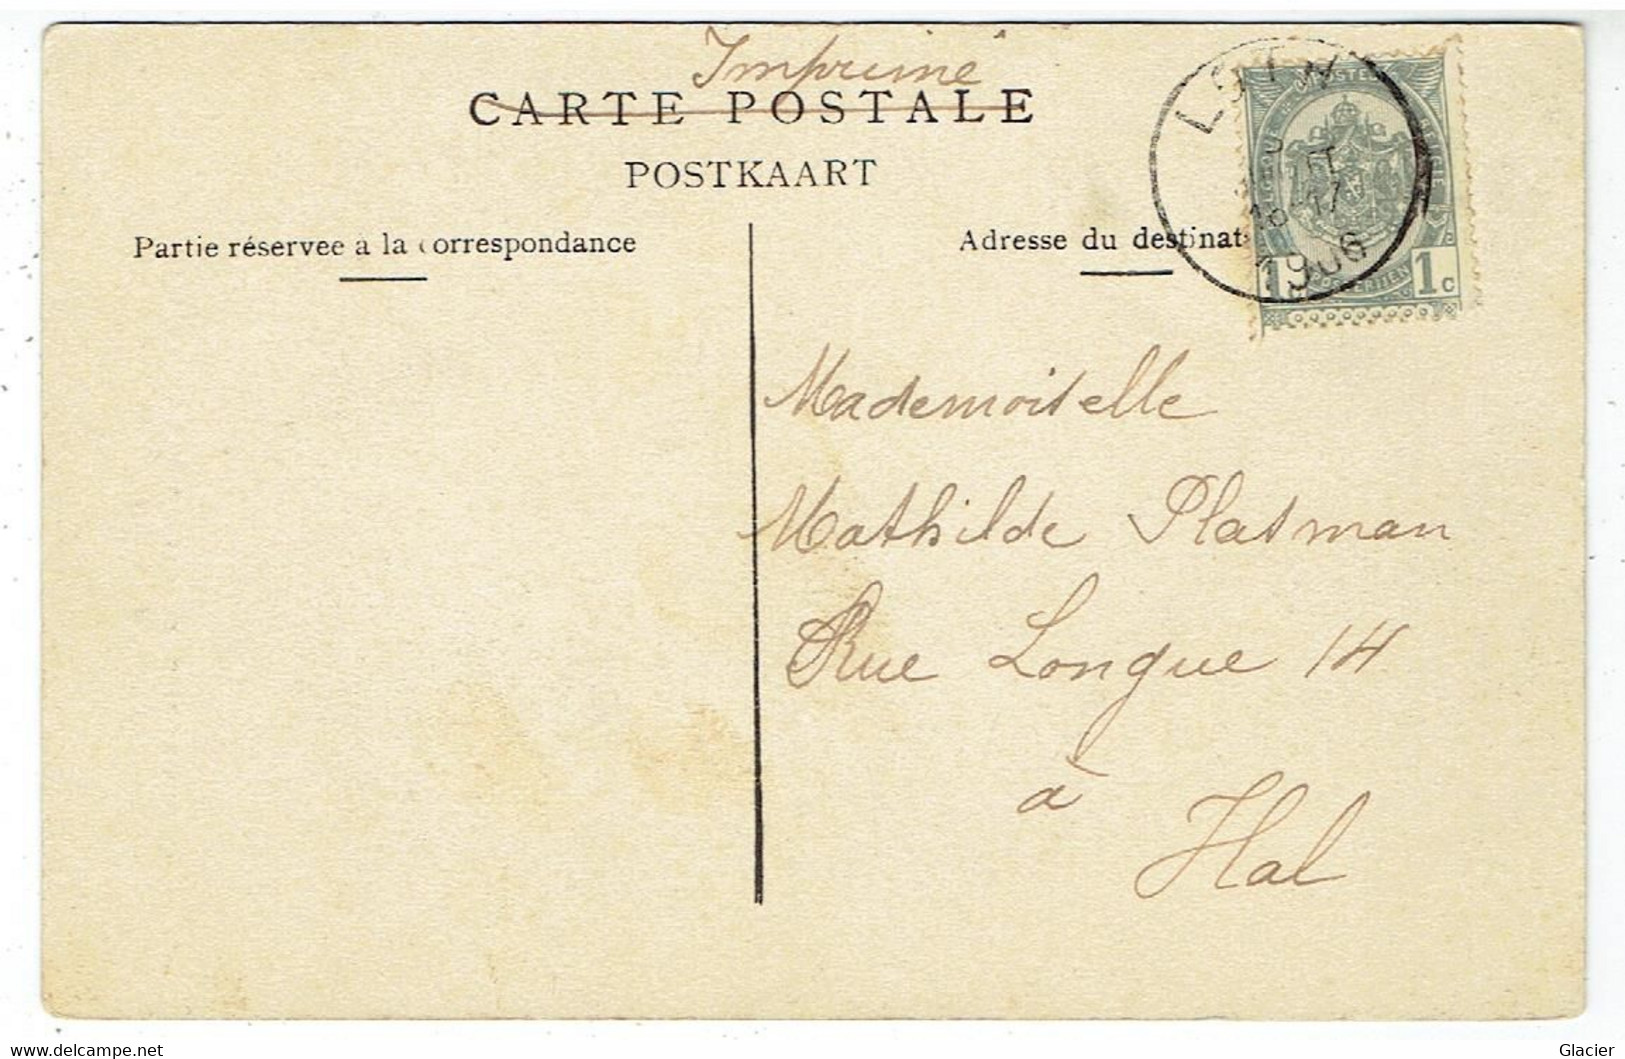 Imprimé
CARTE POSTALE
POSTKAART
Partie réservee a la correspondance
Adresse du destinat
1906
1 1c
Mademoiselle
Mathilde Platman
Rue Longue 14
à
Hal
www.delcampe.net
Glacier